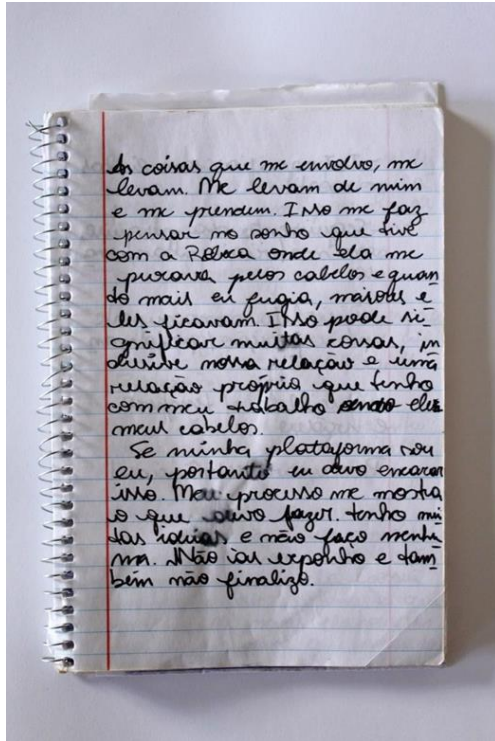 As coisas que me envolvo, me
levam. Me levam de mim
e me prendem. Isso me faz
pensar no sonho que tive
com a Rebeca onde ela me
puxava pelos cabelos e quan
to mais eu fugia, maiores e
les ficavam. Isso pode si_
gnificar muitas coisas, in
clusive nossa relação e uma
relação própria que tenho
com meu trabalho sendo eles
meus cabelos.
Se minha plataforma sou
eu, portanto eu devo encarar
isso. Meu processo me mostra
o que devo fazer. tenho mui
tas ideias e não faço nenhu
ma. Não as exponho e tam_
bém não finalizo.